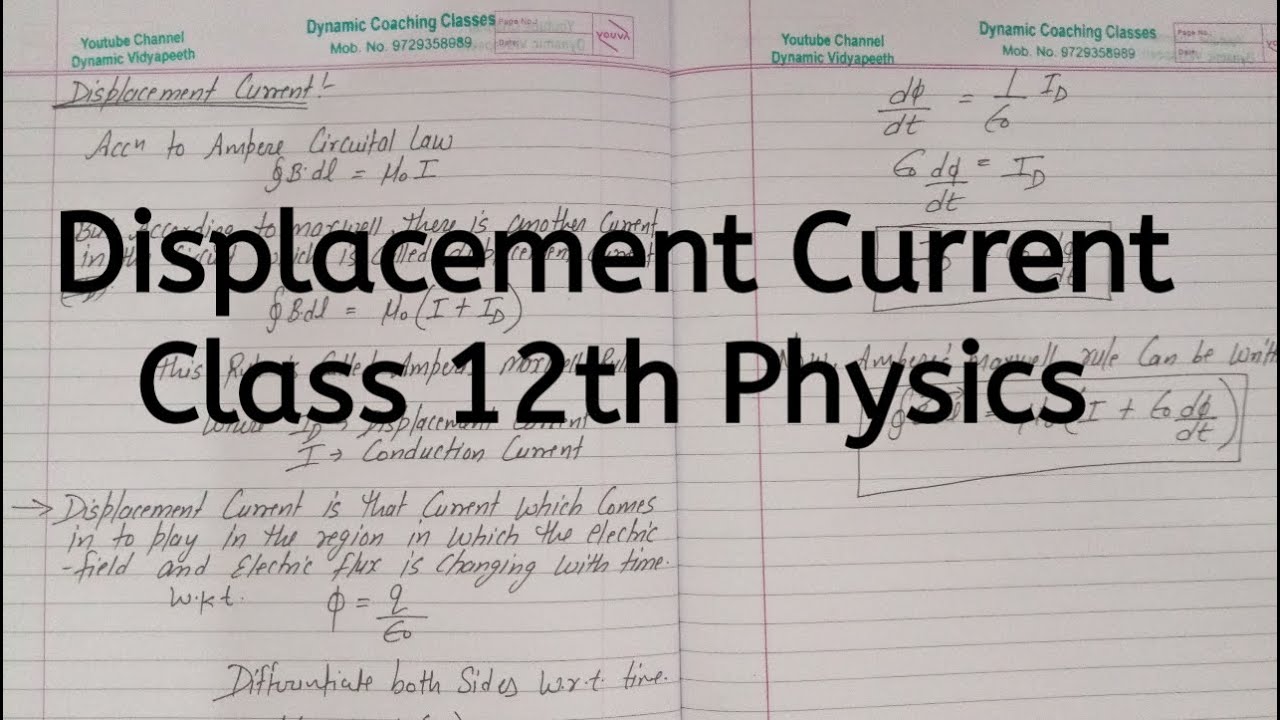 Youtube Channel
Dynamic Vidyapeeth
Dynamic Coaching Classes
Mob. No. 9729358989
Page No.:
Date:
YOUVA
Displacement Current:-
Accn to Ampere Circuital Law
∮B·dl = μ₀I
But According to maxwell, there is another Current
in the circuit which is called displacement current
∮B·dl = μ₀(I + I_D)
this Rule is Called Ampere's maxwell Rule
where I_D → Displacement Current
I → Conduction Current
→ Displacement Current is that Current which Comes
in to play in the region in which the electric
-field and Electric flux is Changing with time.
w.k.t. ϕ = q/ε₀
Differentiate both Sides w.r.t. time.
Youtube Channel
Dynamic Vidyapeeth
Dynamic Coaching Classes
Mob. No. 9729358989
Page No.:
Date:
dϕ/dt = 1/ε₀ I_D
ε₀ dϕ/dt = I_D
Now, Ampere's maxwell rule Can be writte
I + ε₀ dϕ/dt)
Displacement Current
Class 12th Physics